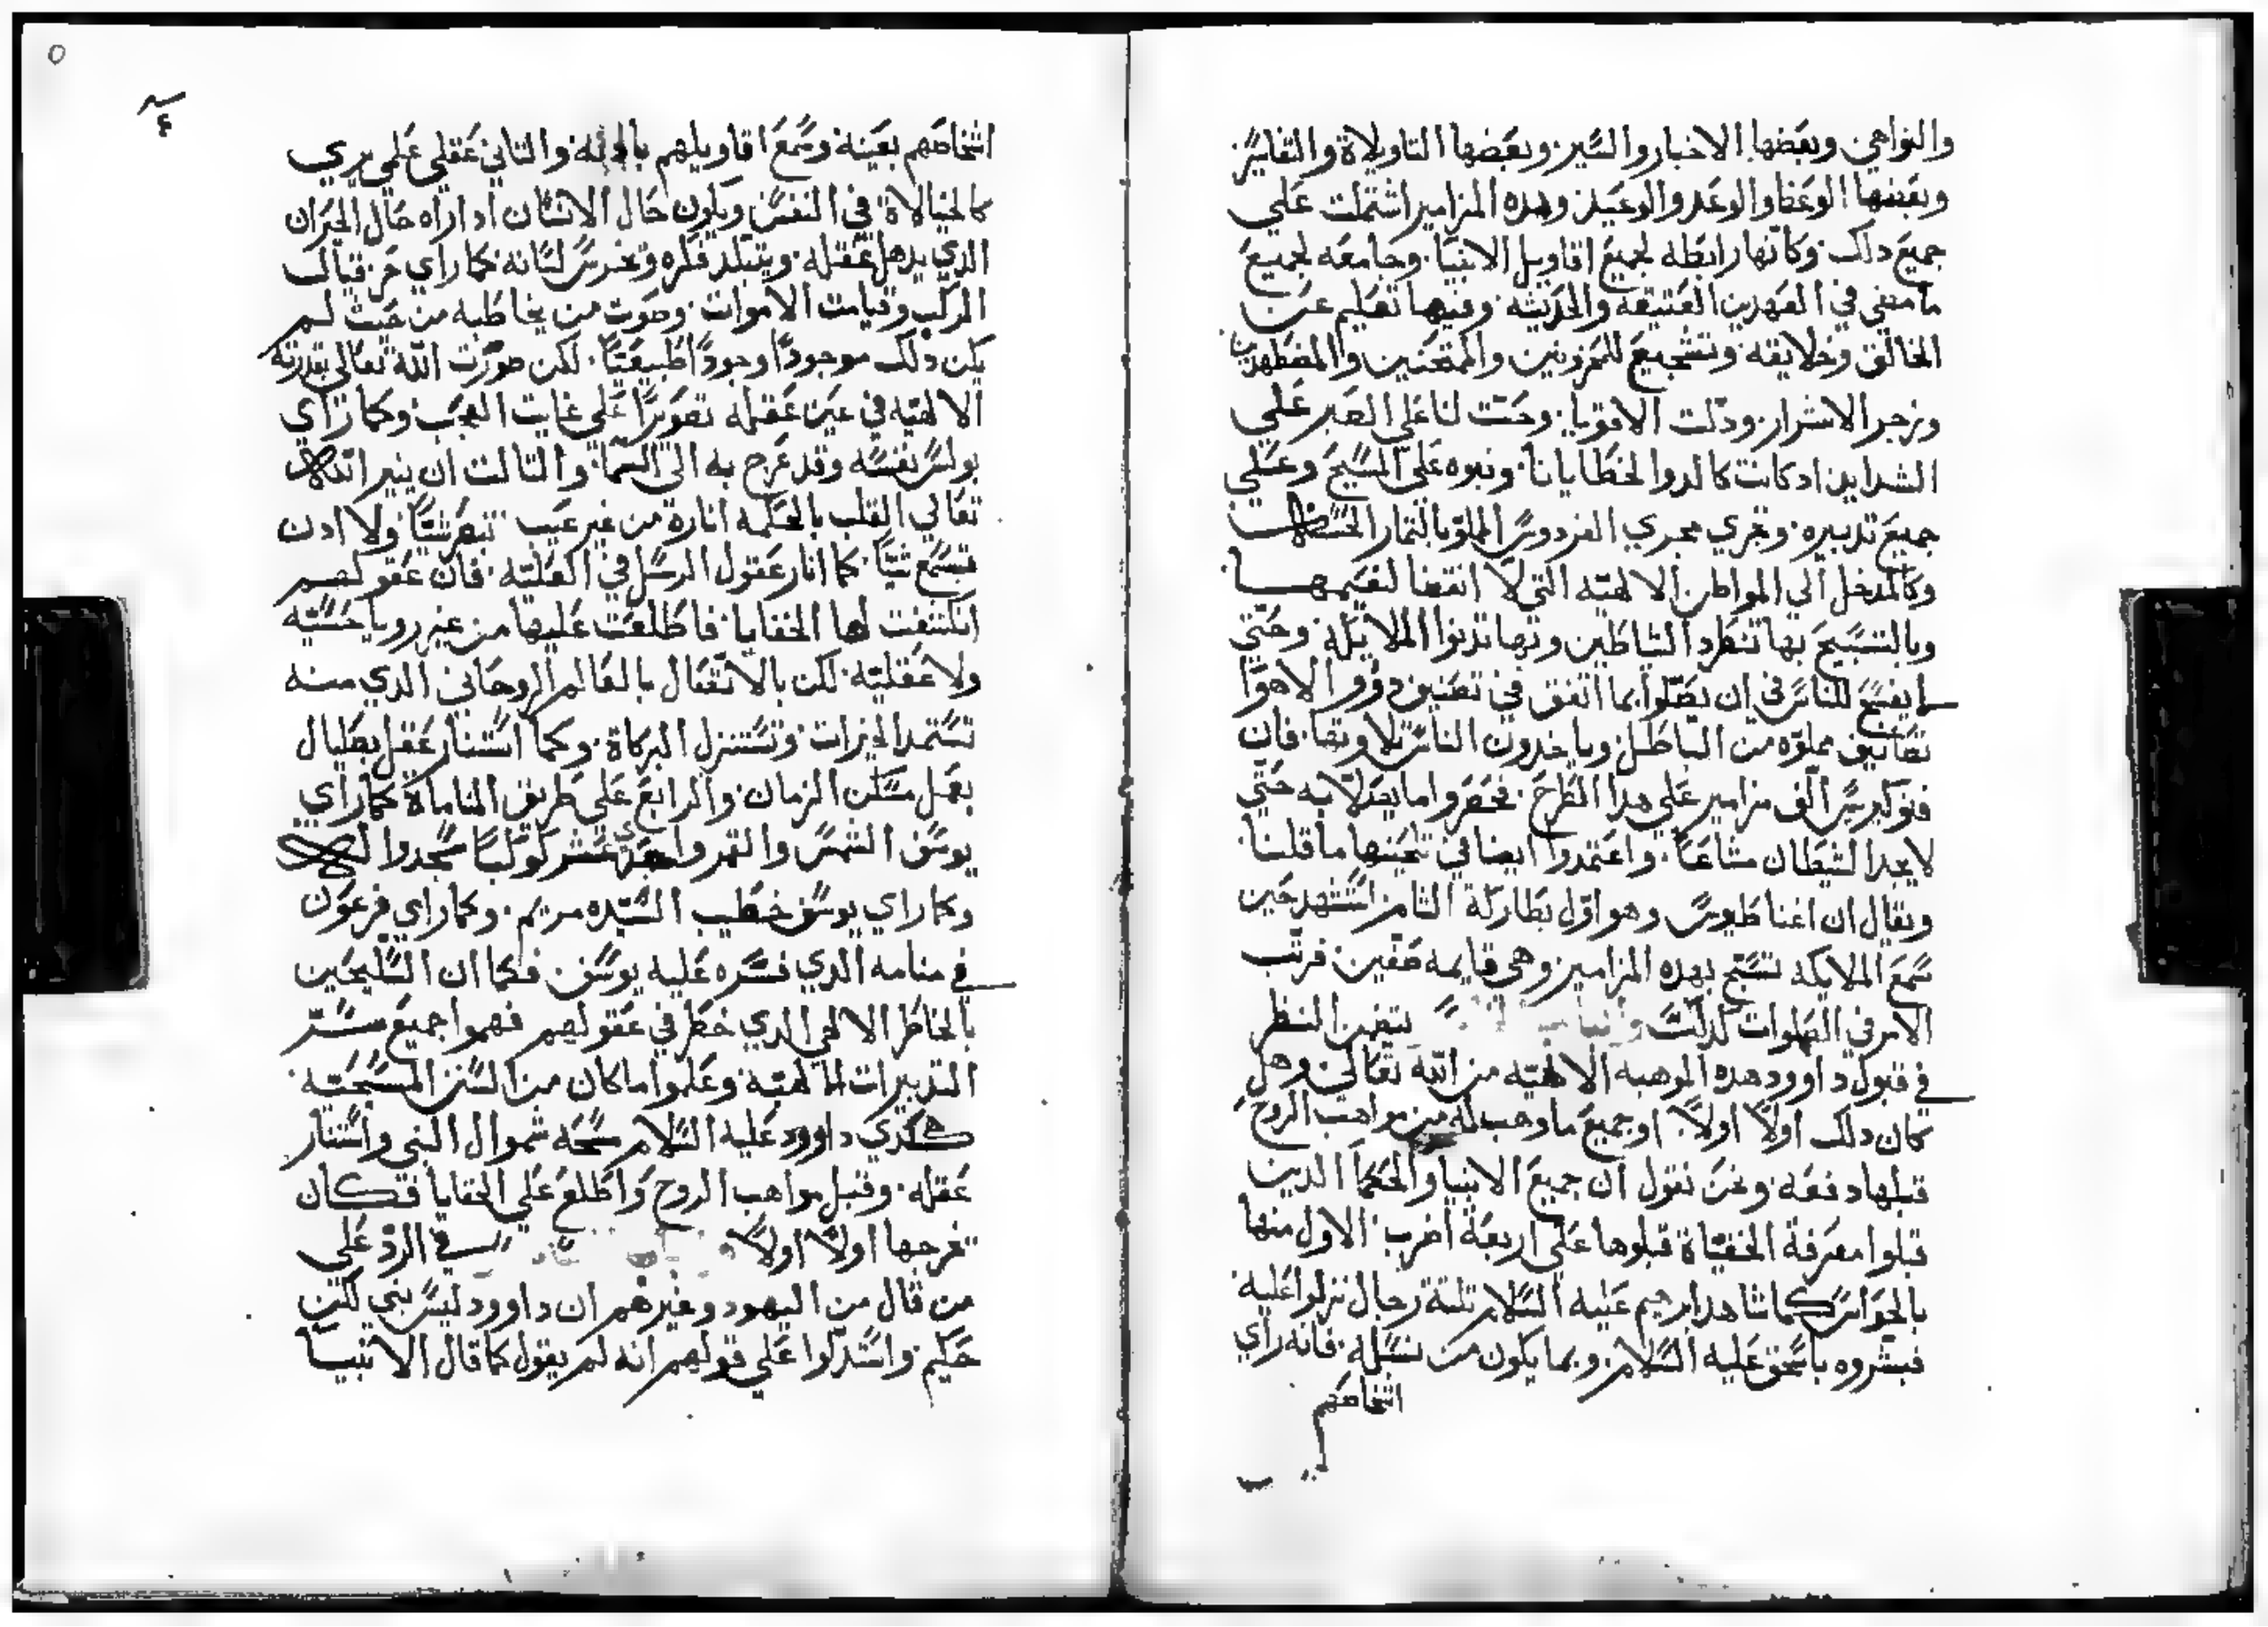 والنواهي وبعضها الاخبار والسير وبعضها التاويلاة والتفاسير
وبعضها الوعظ والوعد والوعيد وهده المزامير اشتملت علي
جميع دلك وكانها رابطه لجميع اقاويل الانبيا وجامعه لجميع
ما مضي في العهدين العتيقه والحديثه وفيها تعليم عن
الخالق وخلايقه وتشجيع للمحزونين والممتحنين والمضطهدين
وزجر الاشرار ودلت الاقويا وحتت لنا علي الصبر علي
الشدايد ادكانت كالدوا لخطايانا ونبوه علي المسيح وعلي
جميع تدبيره وتجري مجري الفردوس المملو بالتمار الحسنه
وكالمدخل الي المواطن الالهيه التي لا انقضا لنعيمها
وبالتسبيح بها تنطرد الشياطين وبها تدنوا الملايكه وحتي
لا يفسح للناس في ان يضلوا بما اتفق في تصنيف دوو الاهوا
تصانيف مملوه من الباطل وياخدون الناس تلاوتها فان
فنوكيرس الف مزامير علي هدا الطرح فحضروا ما يضلا به حتي
لا يجد الشيطان مشاعا واعتمدوا ايضا في تلحينها ما قلنا
ويقال ان اغناطيوس وهو اول بطاركة الشام استشهد حين
سمع الملايكه تسبح بهده المزامير وهي قايمه صفين فرتب
الامر في الصلوات كدلك يتضمن النظر
في قبول داوود هده الموهبه الالهيه من الله تعالي وهل
كان دلك اولا اولا او جميع ما وهب له من مواهب الروح
قبلها دفعه ونحن نقول ان جميع الانبيا والحكما الدين
قبلوا معرفة الخفياة قبلوها علي اربعة اضرب الاول منها
بالحواس كما شاهد ابرهيم عليه السلام تلتة رجال نزلوا عليه
فبشروه باسحق عليه السلام وبما يكون من نسله فانه راي
اشخاصهم
٤
اشخاصهم بعينه وسمع اقاويلهم بادنه والتاني عقلي علي مري
كالخيالاة في النفس ويكون حال الانسان اداراه حال الحيران
الدي يدهل عقله ويتبلد فكره وتخرس لسانه كما راي حزقيال
المركب وقيامت الاموات وصوت من يخاطبه من حيث لم
يكن دلك موجودا وجودا طبيعيا لكن صورت الله تعالي بقدرته
الالهيه في عين عقله تصويرا علي غايت العجب وكما راي
بولس نفسه وقد عرج به الي السما والتالت ان ينير الله
تعالي القلب بالحكمه انارة من غير عين تبصر شيا ولا ادن
تسمع شيا كما انار عقول الرسل في العليه فان عقولهم
انكشفت لها الخفايا فاطلعت عليها من غير رويا حسيه
ولا عقليه لكن بالاتصال بالعالم الروحاني الدي منه
تستمد الخيرات وتستنزل البركاة وكما استنار عقل بصليال
بعمل مسكن الزمان والرابع علي طريق المناماة كما راي
يوسف الشمس والقمر واحدي عشر كوكبا سجدوا له
وكما راي يوسف خطيب السيده مريم وكما راي فرعون
في منامه الدي فسره عليه يوسف فكما ان السليحين
بالخاطر الالهي الدي خطر في عقولهم فهموا جميع سر
التدبيرات الالهيه وعلموا ما كان من السنن المسيحيه
هكدي داوود عليه السلام مسحه شموال النبي واستنار
عقله وقبل مواهب الروح واطلع علي الخفايا فكان
تخرجها اولا اولا في الرد علي
من قال من اليهود وغيرهم ان داوود ليس بنبي لكن
حكيم واستدلوا علي قولهم انه لم يقول كما قال الانبيا